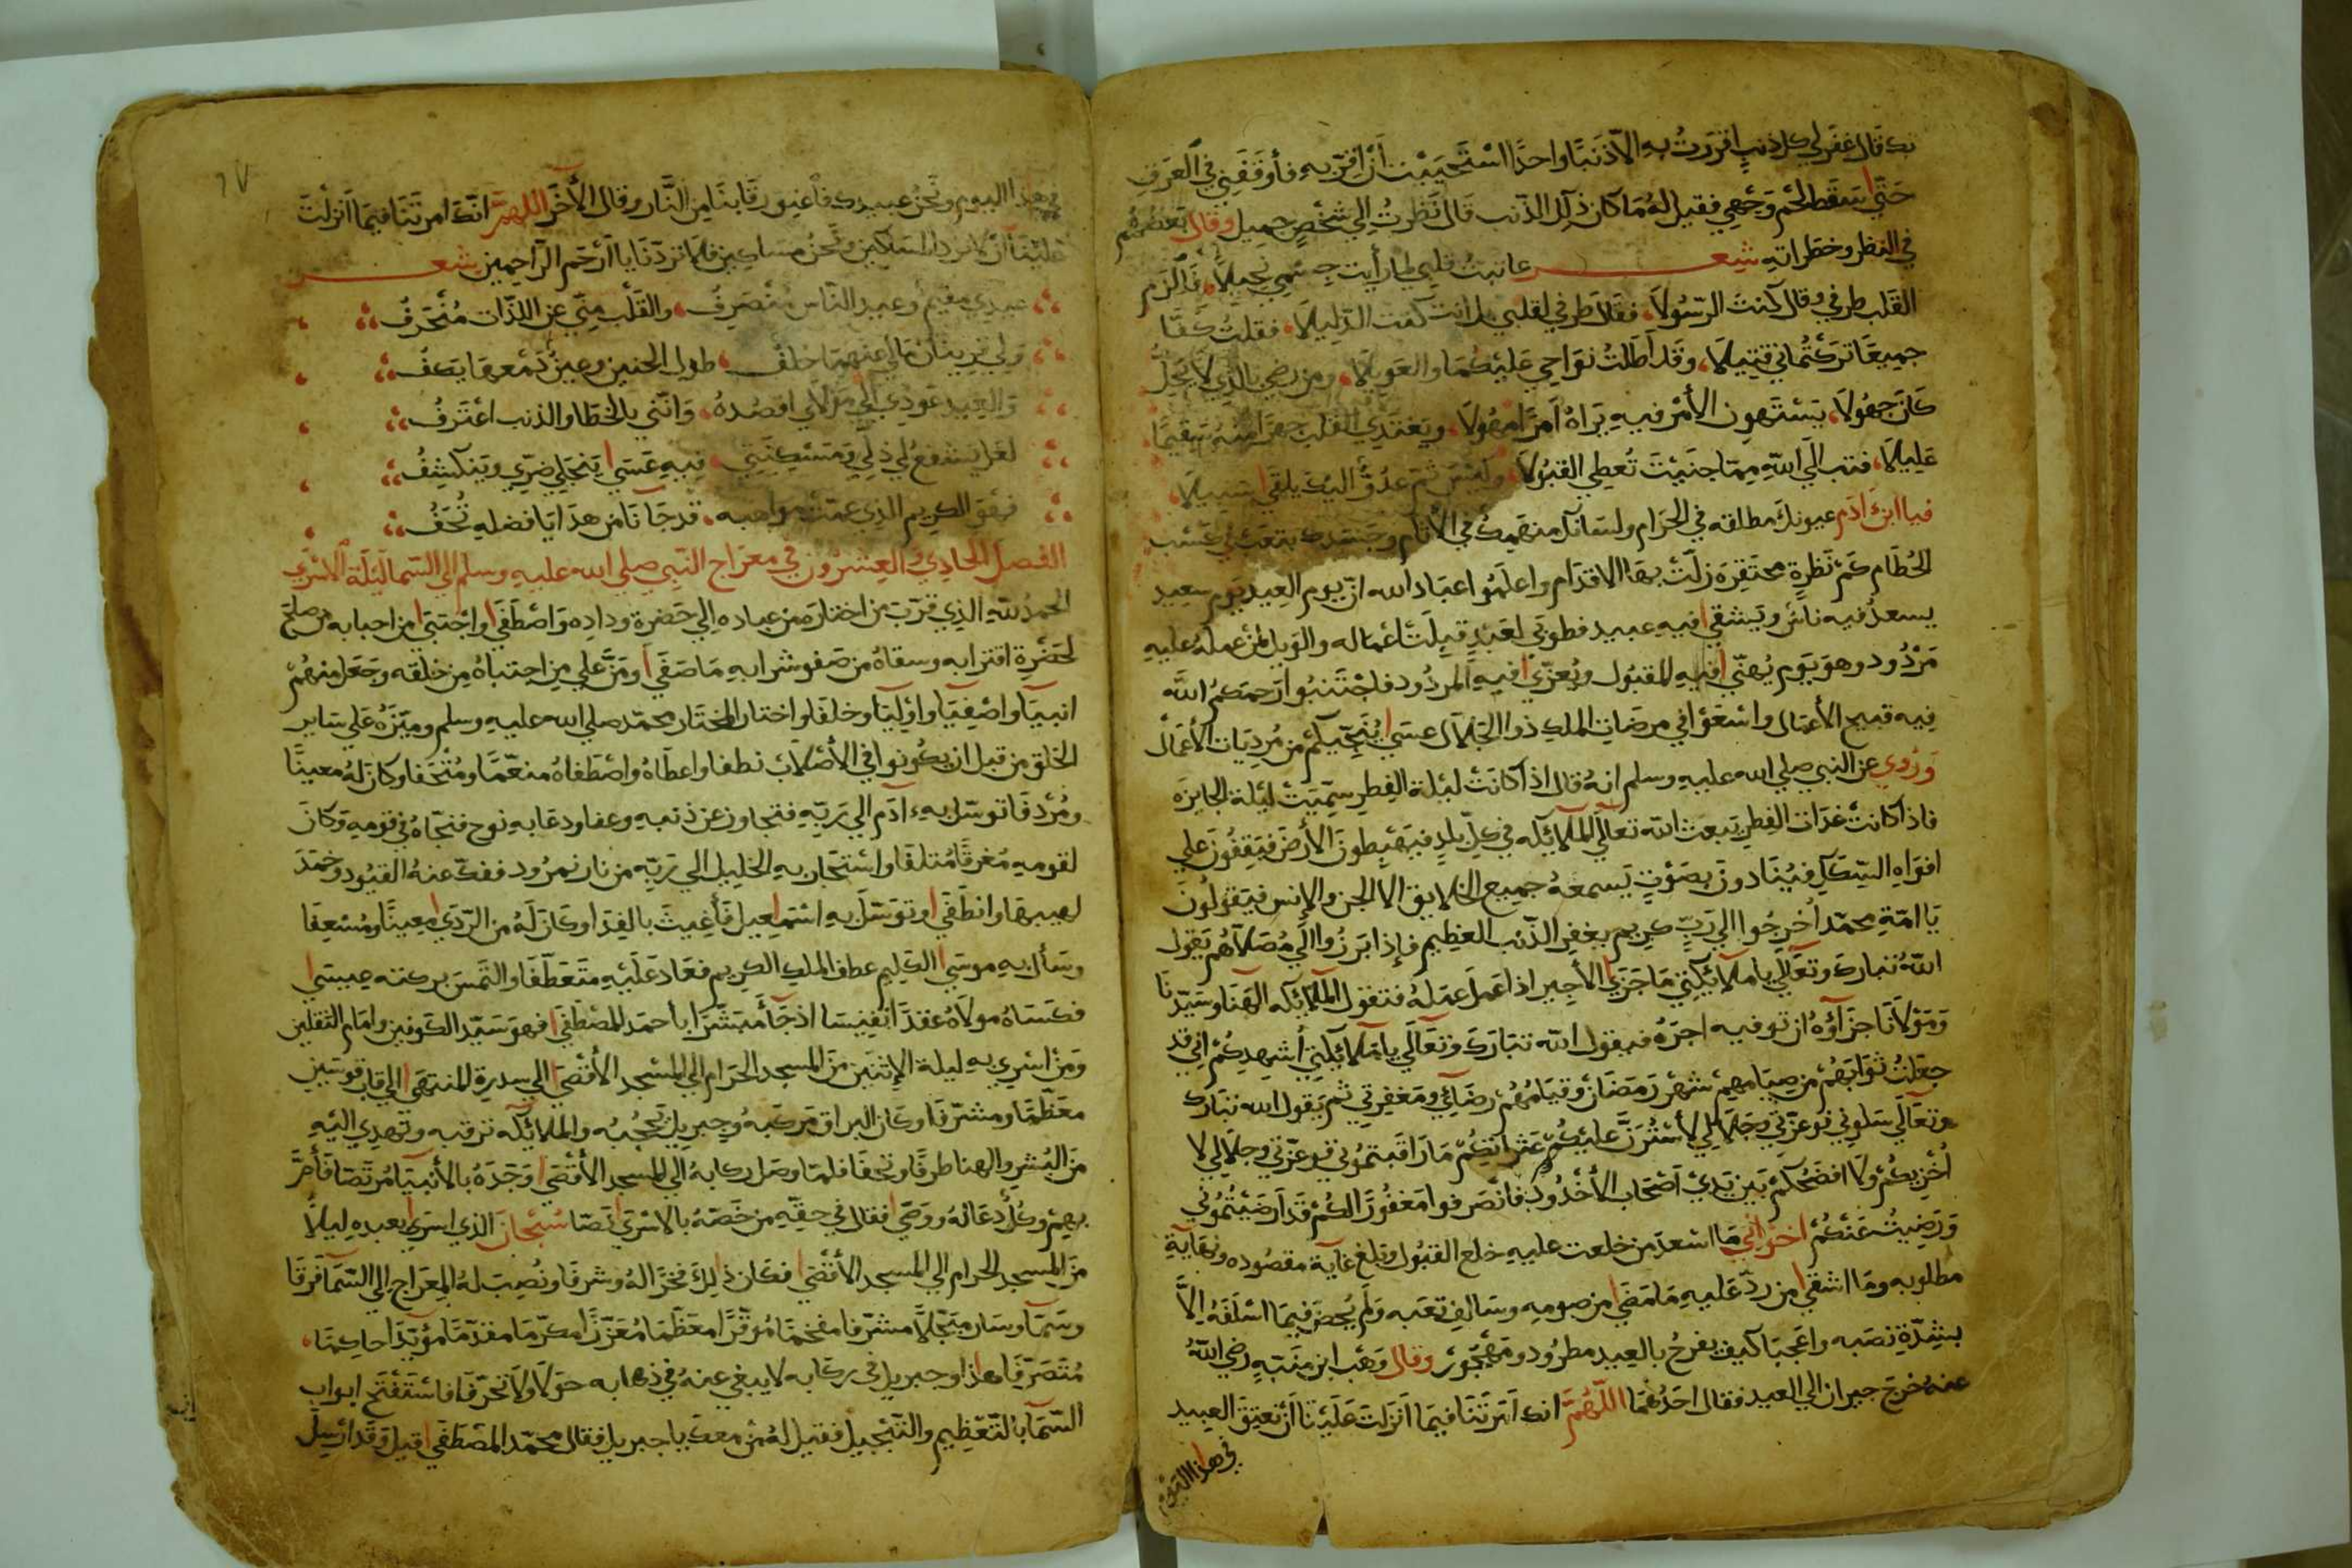 بك قال غفر لي كل ذنب اقررت به الا ذنبا واحدا استحييت أن اقر به فأوقفني في العرق
حتى سقط لحم وجهي فقيل له ما كان ذلك الذنب قال نظرت الي شخص جميل وقال بعضهم
في النظر وخطراته شعر عاتبت قلبي لما رأيت جسمي نحيلا، فألزم
القلب طرفي وقال كنت الرسولا، فقال طرفي لقلبي بل انت كنت الدليلا، فقلت كفا
جميعا تركتماني قتيلا، وقد أطلت نواحي عليكما والعويلا، ومن رضي بالذي لا يحل
كان جهولا، يستهون الأمر فيه يراه امرا مهولا، ويغتدي القلب جهرا منه سقيما
عليلا، فتب الي الله مما جنيت تعطي القبولا، وليس ثم عدو اليك يلقي سبيلا،
فيا ابن ادم عيونك مطلقه في الحرام ولسانك منهمك في الأثام وجسدك يتعب لي كسب
الحطام كم نظرة محتقره زلت بها الاقدام واعلموا عباد الله ان يوم العيد يوم سعيد
يسعد فيه ناس ويشقي فيه عبيد فطوبي لعبد قبلت اعماله والويل لمن عمله عليه
مردود وهو يوم يهني فيه المقبول ويعزي فيه المردود فاجتنبوا رحمكم الله
فيه قبيح الأعمال واسعوا في مرضات الملك ذو الجلال عسي ينجيكم من مرديات الأعمال
وروي عن النبي صلي الله عليه وسلم انه قال اذا كانت ليلة الفطر سميت ليلة الجايزه
فاذا كانت غدات الفطر يبعث الله تعالي الملائكه في كل بلد فيهبطون الأرض فيقفون علي
افواه السكك فينادون بصوت يسمعه جميع الخلايق الا الجن والإنس فيقولون
يا امة محمد اخرجوا الي رب كريم يغفر الذنب العظيم فإذا برزوا الي مصلاهم يقول
الله تبارك وتعالي يا ملائكتي ما جزي الأجير اذا عمل عمله فتقول الملائكه الهنا وسيدنا
ومولانا جزآؤه ان توفيه اجره فيقول الله تبارك وتعالي يا ملائكتي أشهدكم اني قد
جعلت ثوابهم من صيامهم شهر رمضان وقيامهم رضآئي ومغفرتي ثم يقول الله تبارك
وتعالي سلوني فوعزتي وجلالي لأسترن عليكم عثراتكم ما راقبتموني فوعزتي وجلالي لا
أخزيكم ولا افضحكم بين يدي اصحاب الأخدود فانصرفوا مغفورا لكم قد ارضيتموني
ورضيت عنكم اخواني ما اسعد من خلعت عليه خلع القبول وبلغ غاية مقصوده ونهاية
مطلوبه وما اشقي من رد عليه ما مضي من صومه وسالف تعبه ولم يحض فيما اسلفه الا
بشدة نصبه واعجبا كيف يفرح بالعيد مطرود ومهجور وقال وهب ابن منبه رضي الله
عنه خرج جيران الي العيد فقال احدهما اللهم انك امرتنا فيما انزلت علينا أن نعتق العبيد
في هذا اليوم
٦٧
في هذا اليوم ونحن عبيدك فأعتق رقابنا من النار وقال الأخر اللهم انك امرتنا فيما انزلت
علينا أن لا نرد المساكين ونحن مساكين فلا تردنا يا أرحم الراحمين شعر
عيدي مقيم وعيد الناس منصرف، والقلب مني عن اللذات منحرف
ولي قرينان مالي عنهما خلف، طول الحنين وعين دمعها يكف
والعيد عودي الي مولاي اقصده، وانني بالخطا والذنب اعترف
لعل يشفع لي ذلي ومسكنتي، فيه عسي ينجلي ضري وينكشف
فهو الكريم الذي عمت مواهبه، قد جانا من هدايا فضله تحف
الفصل الحادي والعشرون في معراج النبي صلي الله عليه وسلم الي السما ليلة الاسري
الحمد لله الذي قرب من اختاره من عباده الي حضرة وداده واصطفي واجتبي من احبابه من صلح
لحضرة اقترابه وسقاه من صفو شرابه ما صفي ومن علي من اجتباه من خلقه وجعل منهم
انبيا واصفيا واوليا وخلفا واختار المختار محمد صلي الله عليه وسلم وميزه علي ساير
الخلق من قبل ان يكونوا في الأصلاب نطفا واعطاه واصطفاه منعما ومتحفا وكان له معينا
ومردفا توسل به ءادم الي ربه فتجاوز عن ذنبه وعفا ودعا به نوح فنجاه في قومه وكان
لقومه مغرقا متلفا واستجار به الخليل الي ربه من نار نمرود ففك عنه القيود وخمد
لهيبها وانطفي وتوسل به اسمعيل فأغيث بالفدا وكان له من الردي معينا ومسعفا
وسأل به موسي الكليم عطف الملك الكريم فعاد عليه متعطفا والتمس بركته عيسي
فكساه مولاه عقدا نفيسا اذ جآ مبشرا بأحمد المصطفي فهو سيد الكونين وامام الثقلين
ومن اسري به ليلة الإثنين من المسجد الحرام الي المسجد الأقصي الي سدرة المنتهي الي قاب قوسين
معظما ومشرفا وكان البراق مركبه وجبريل يحجبه والملائكه ترقبه وتهدي اليه
من البشر والهنا طرفا وتحفا فلما وصل ركابه الي المسجد الأقصي وجده بالأنبيا مرتصا فأم
بهم وكل دعا له ووصي فقال في حقه من خصه بالاسري نصا سبحان الذي اسري بعبده ليلا
من المسجد الحرام الي المسجد الأقصي فكان ذلك فخرا له وشرفا ونصبت له المعراج الي السما فرقا
وسما وسار مبجلا مشرفا مفخما موقرا معظما معززا مكرما مقدما مؤيدا حاكما،
متصرفا هذا وجبريل في ركابه لا يبغي عنه في ذهابه حولا ولا تحرفا فاستفتح ابواب
السما بالتعظيم والتبجيل فقيل له من معك يا جبريل فقال محمد المصطفي قيل وقد ارسل